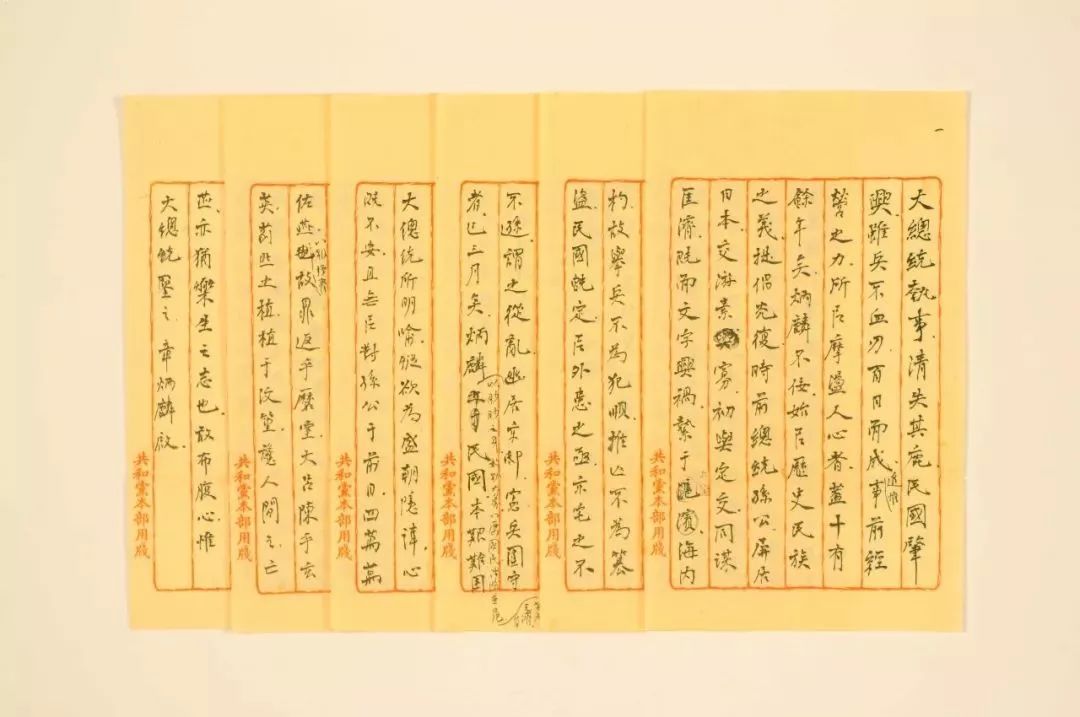 大總統執事清失其鹿民國肇
興雖兵不血刃百日而成追惟事前經
營之力所㠯摩盪人心者蓋十有
餘年矣炳麟不佞始㠯歷史民族
之義提倡光復時前總統孫公屏居
日本交游素寡初與定交同謀
匡濟既而文字興禍縶于滬濱海内
共和黨本部用牋
一
杓故舉兵不為犯順推亡不為篡
盜民國既定㠯外患之亟宗宅之不
共和黨本部用牋
不遜謂之從亂幽居京邸憲兵圍守
者已三月矣炳麟民國本艱難困
共和黨本部用牋
大總統所明喻縱欲為盛朝隱諱心
既不安且無㠯對孫公于前日四萬萬
共和黨本部用牋
佐燕故鼎返乎磿室大呂陳乎玄
英薊丘之植植于汶篁人間之亡
共和黨本部用牋
燕亦猶樂生之志也敢布腹心惟
大總統鑒之章炳麟啟
共和黨本部用牋